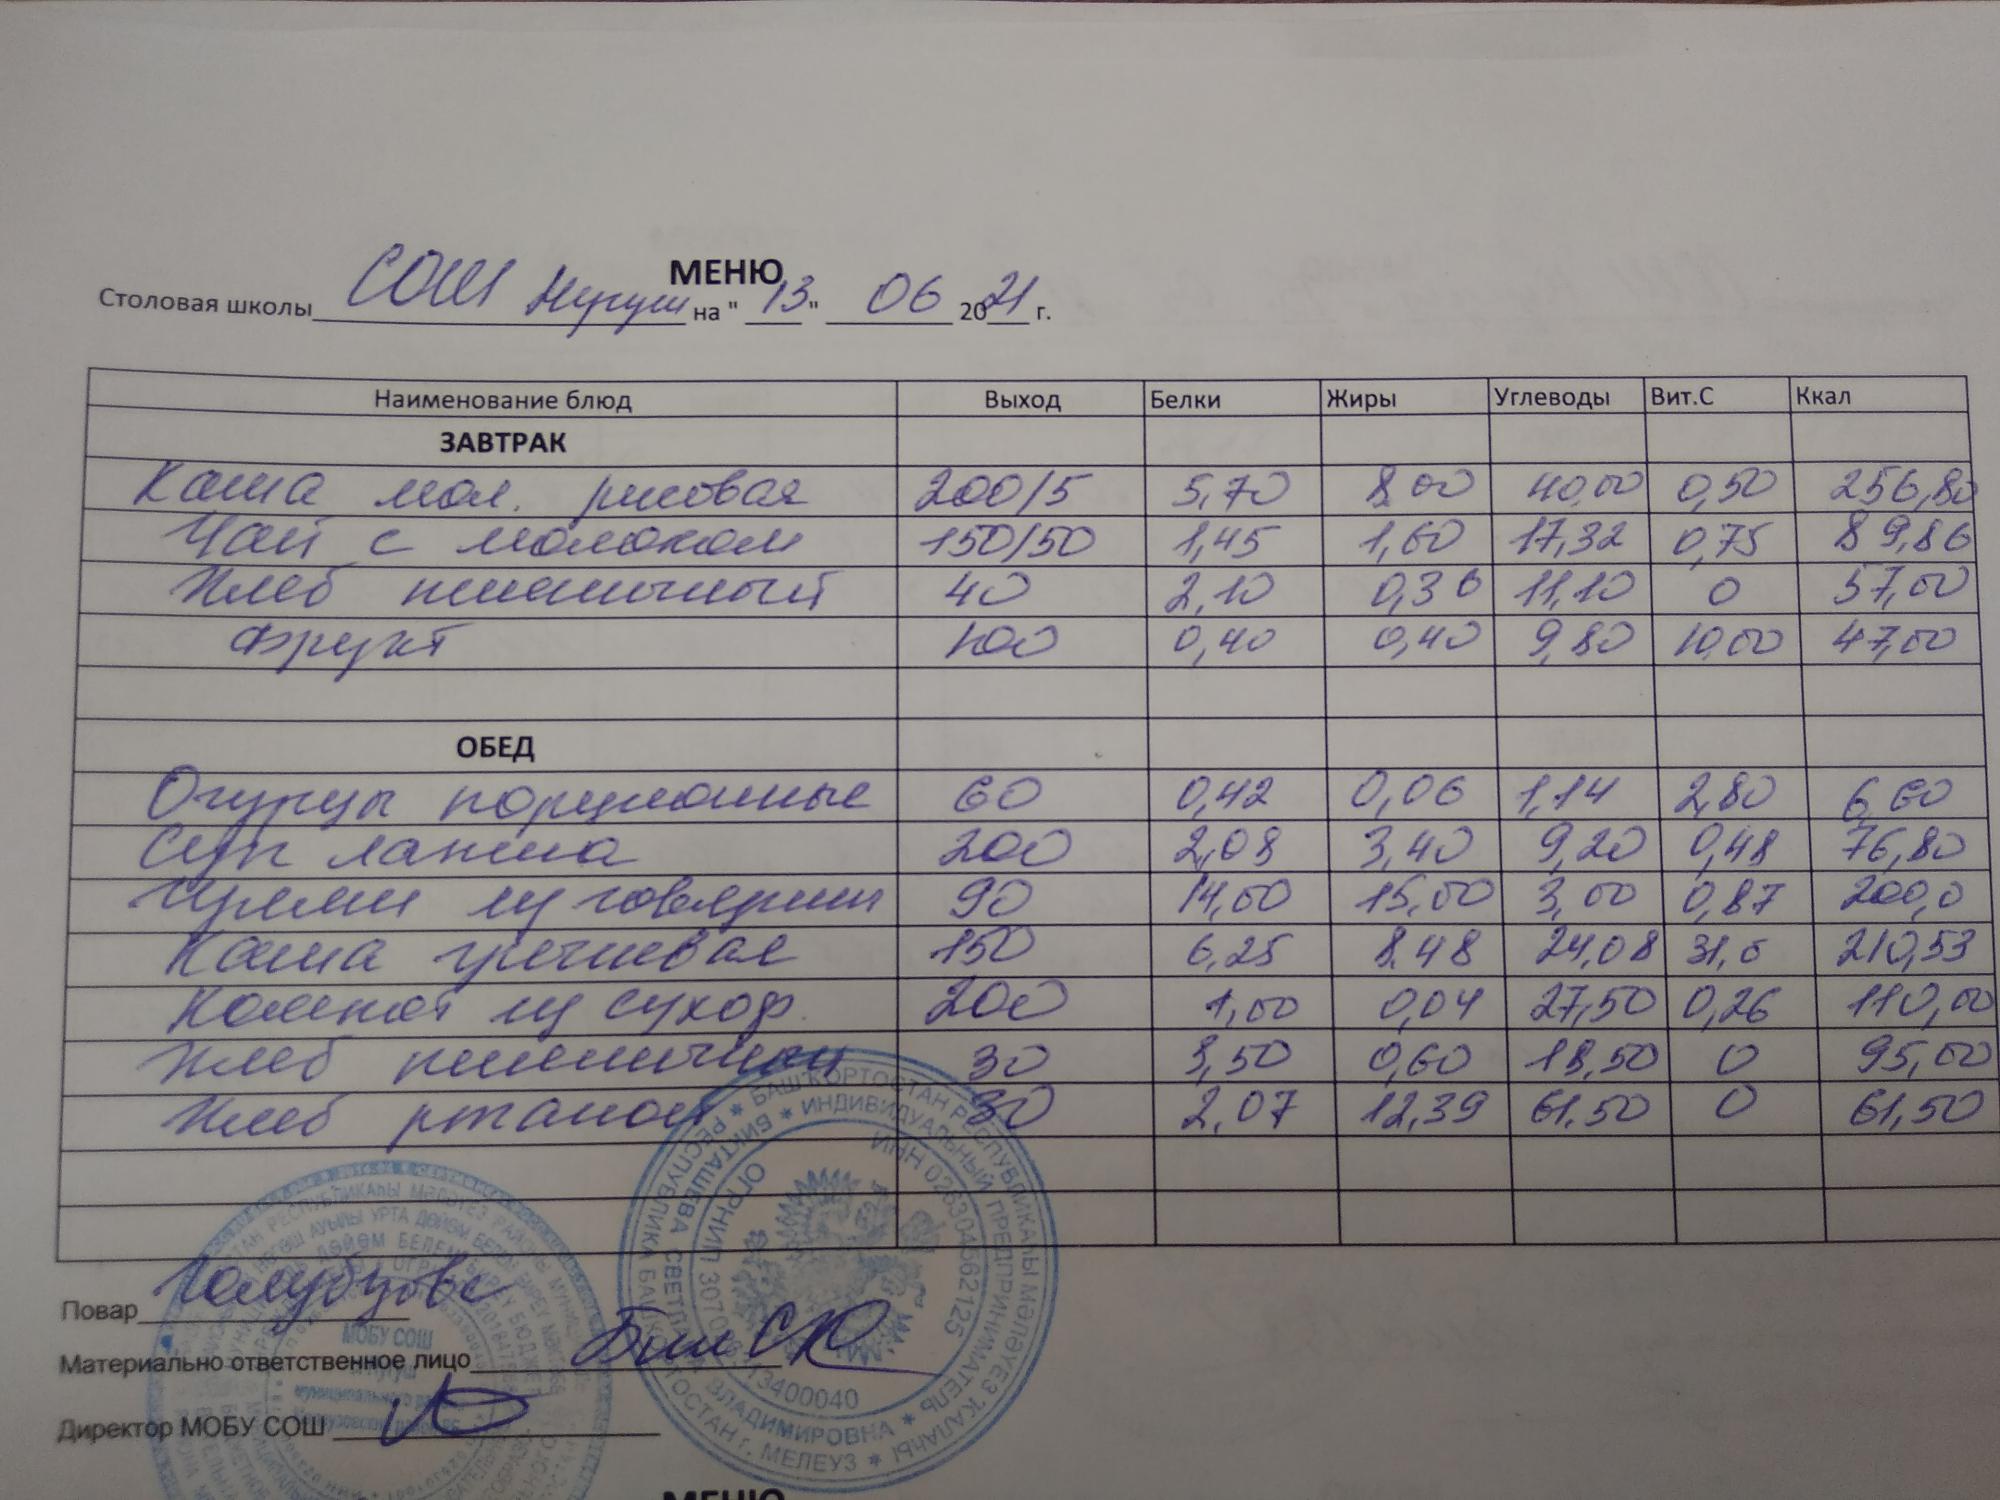 МЕНЮ
Столовая школы СОШ Нугуш на "13" 06 2021 г.
Наименование блюд Выход Белки Жиры Углеводы Вит.С Ккал
ЗАВТРАК
Каша мол. рисовая 200/5 5,70 8,00 40,00 0,50 256,80
Чай с молоком 150/50 1,45 1,60 17,32 0,75 89,86
Хлеб пшеничный 40 2,10 0,36 11,10 0 57,00
Фрукт 100 0,40 0,40 9,80 10,00 47,00
ОБЕД
Огурцы порционные 60 0,42 0,06 1,14 2,80 6,60
Суп лапша 200 2,08 3,40 9,20 0,48 76,80
из говядины 90 14,00 15,00 3,00 0,87 200,0
Каша гречневая 150 6,25 8,48 24,08 31,0 210,53
Компот из сухоф. 200 1,00 0,04 27,50 0,26 110,00
Хлеб пшеничный 30 3,50 0,60 18,50 0 95,00
Хлеб ржаной 30 2,07 12,39 61,50 0 61,50
Повар Голубцова
Материально ответственное лицо
Директор МОБУ СОШ
БАШҠОРТОСТАН РЕСПУБЛИКАҺЫ МӘЛӘҮЕЗ ҠАЛАҺЫ
РЕСПУБЛИКА БАШКОРТОСТАН г. МЕЛЕУЗ
ИНДИВИДУАЛЬНЫЙ ПРЕДПРИНИМАТЕЛЬ
БИКТАШЕВА СВЕТЛАНА ВЛАДИМИРОВНА
ИНН 026304562125
МОБУ СОШ
МЕНЮ